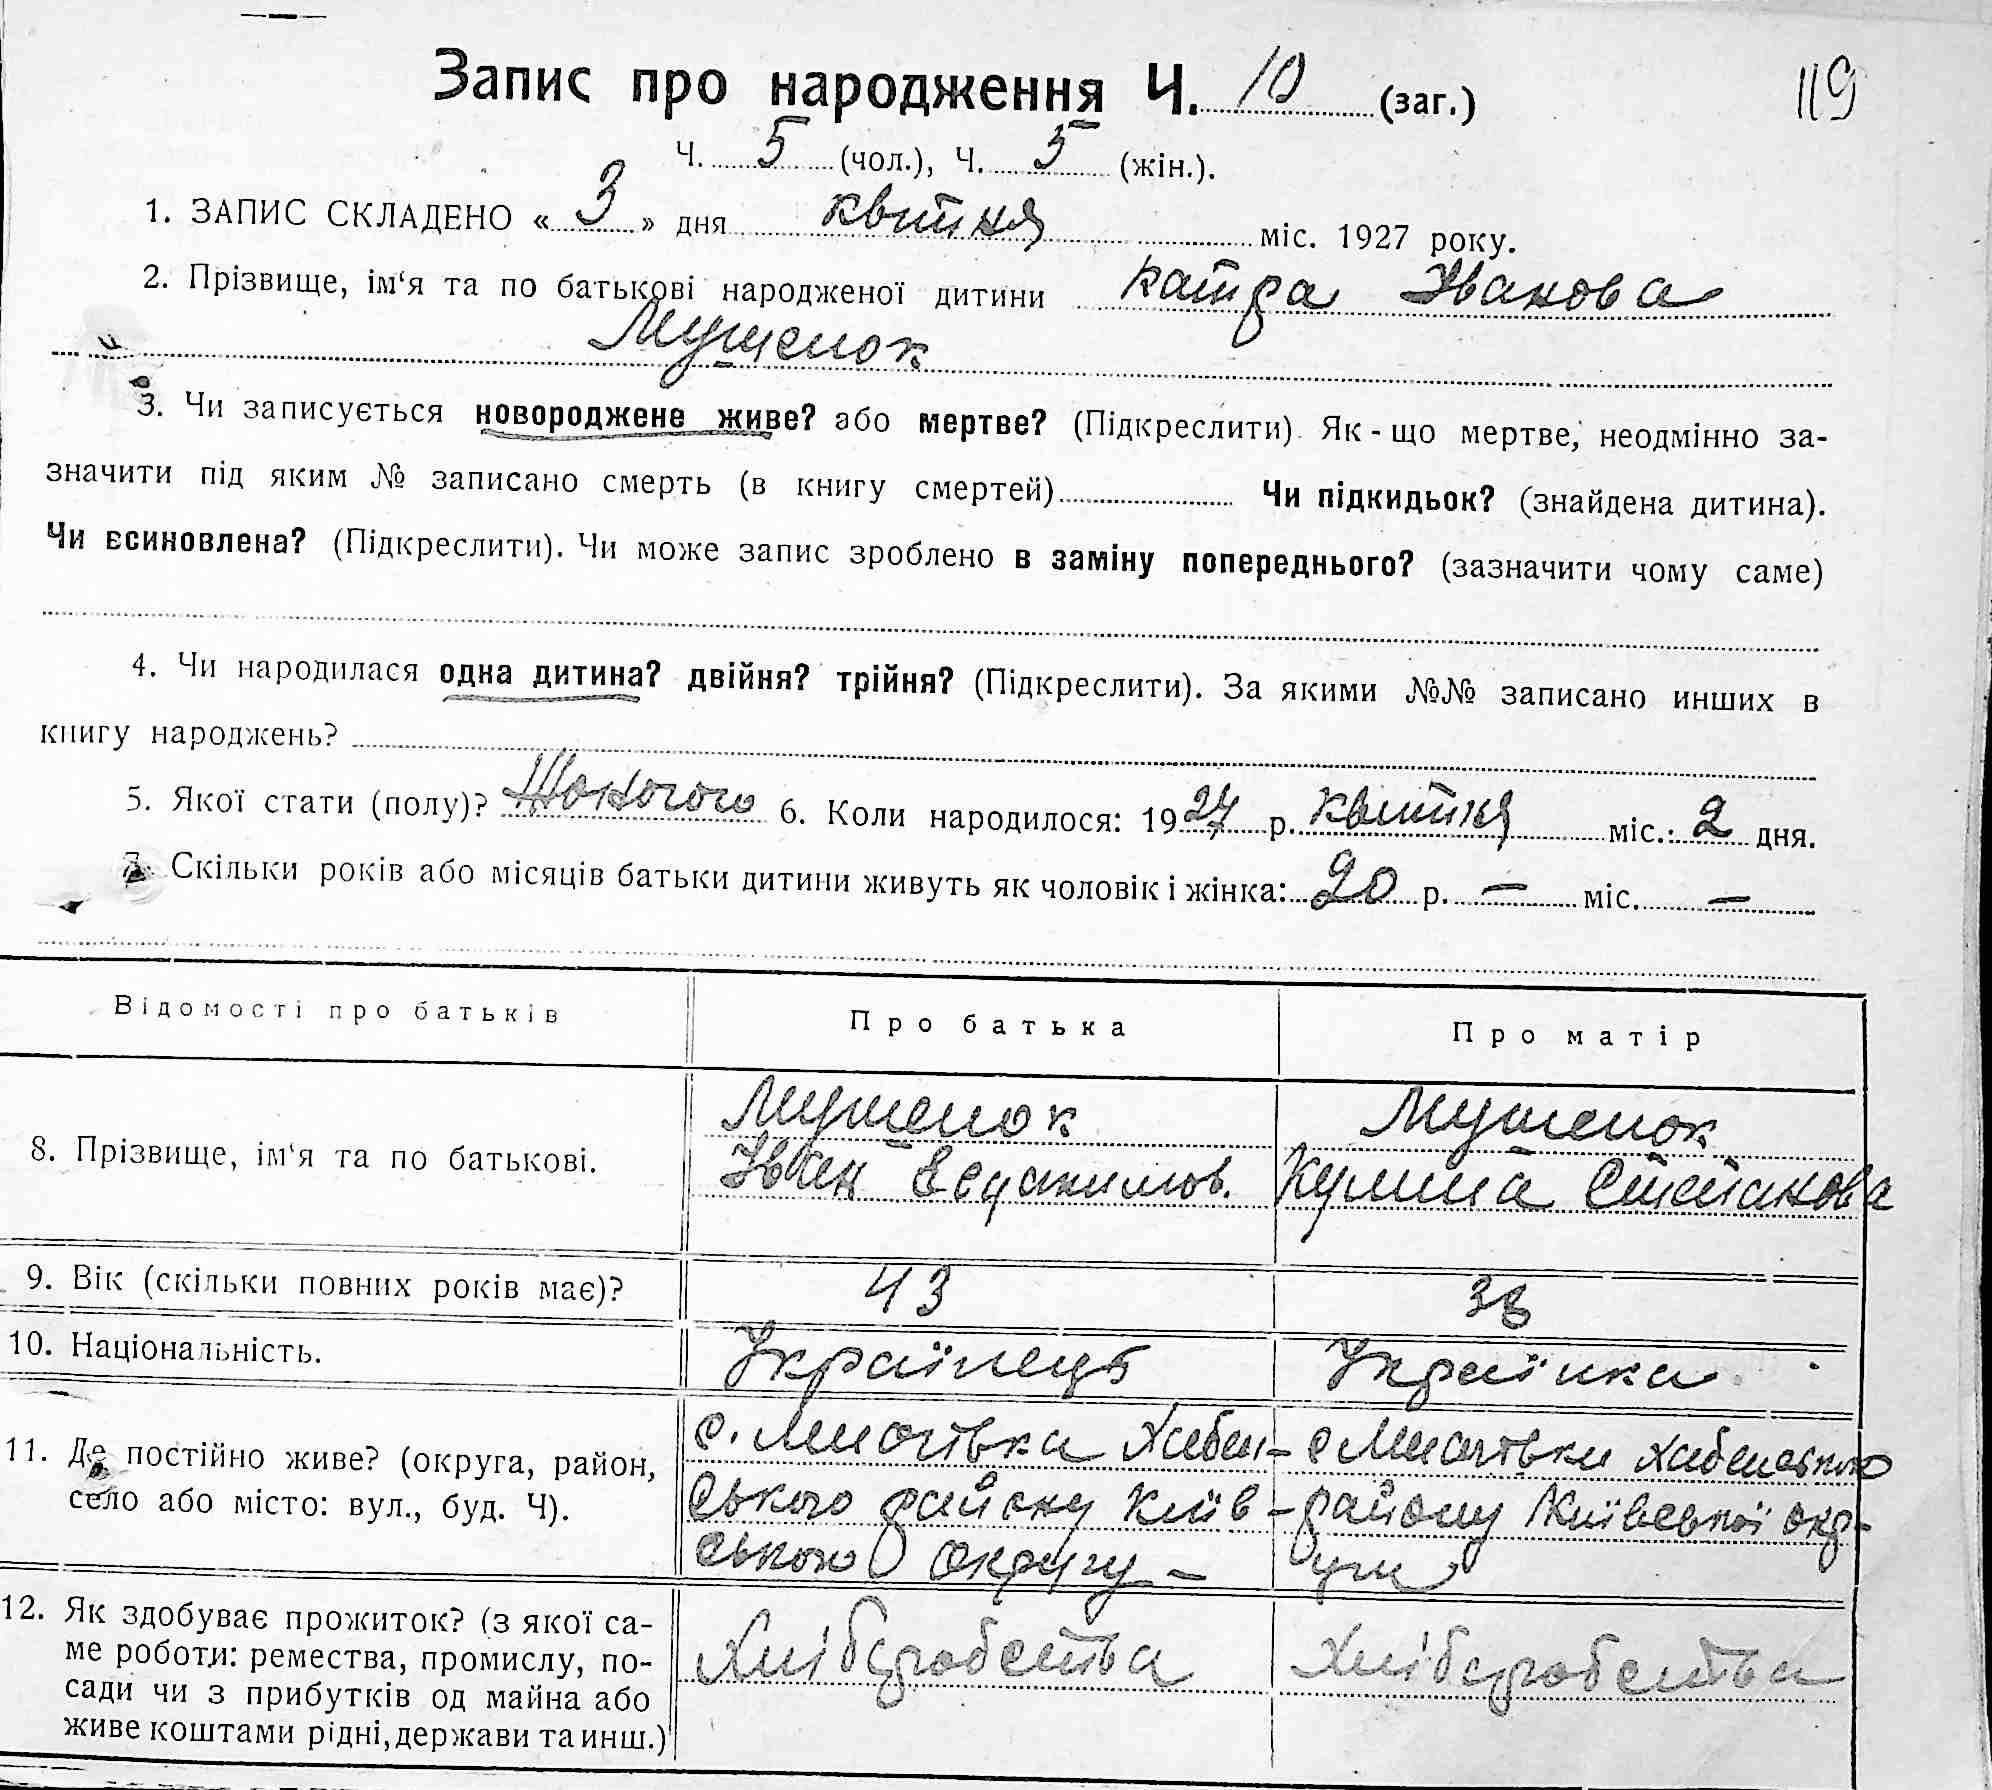 Запис про народження Ч. 10 (заг.)
119
Ч. 5 (чол.), Ч. 5 (жін.).
1. ЗАПИС СКЛАДЕНО « 3 » дня квітня міс. 1927 року.
2. Прізвище, ім‘я та по батькові народженої дитини Катра Іванова
Мушенок
3. Чи записується новороджене живе? або мертве? (Підкреслити). Як-що мертве, неодмінно за-
значити під яким № записано смерть (в книгу смертей) Чи підкидьок? (знайдена дитина).
Чи всиновлена? (Підкреслити). Чи може запис зроблено в заміну попереднього? (зазначити чому саме)
4. Чи народилася одна дитина? двійня? трійня? (Підкреслити). За якими №№ записано инших в
книгу народжень?
5. Якої стати (полу)? Жоночого 6. Коли народилося: 1927 р. квітня міс.: 2 дня.
7. Скільки років або місяців батьки дитини живуть як чоловік і жінка: 20 р. — міс. —
Відомості про батьків Про батька Про матір
8. Прізвище, ім‘я та по батькові.
Мушенок
Іван
Мушенок
Степанова
9. Вік (скільки повних років має)? 43 38
10. Національність. Українець Українка
11. Де постійно живе? (округа, район,
село або місто: вул., буд. Ч).
с. Хабен-
ського району Київ-
ського округу —
с Хабенського
району Київської окр-
уги
12. Як здобуває прожиток? (з якої са-
ме роботи: ремества, промислу, по-
сади чи з прибутків од майна або
живе коштами рідні, держави та инш.)
Хліборобства
Хліборобства